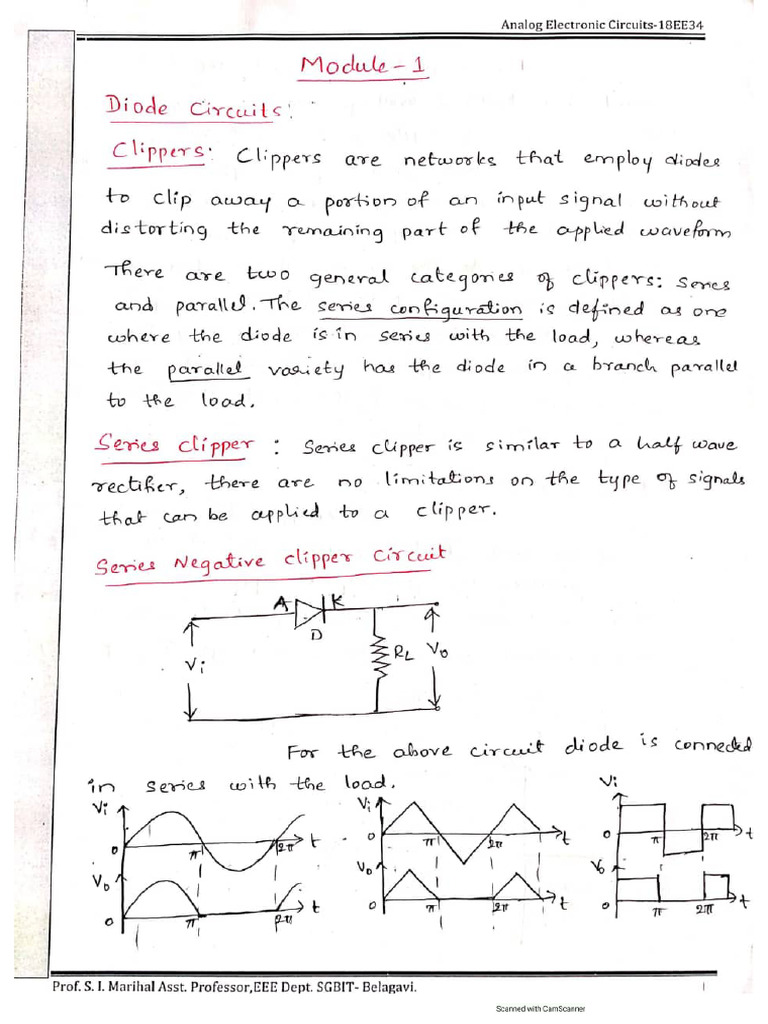 Analog Electronic Circuits-18EE34
Module-1
Diode Circuits:
Clippers: Clippers are networks that employ diodes
to clip away a portion of an input signal without
distorting the remaining part of the applied waveform
There are two general categories of clippers: series
and parallel. The series configuration is defined as one
where the diode is in series with the load, whereas
the parallel variety has the diode in a branch parallel
to the load.
Series clipper : Series clipper is similar to a half wave
rectifier, there are no limitations on the type of signals
that can be applied to a clipper.
Series Negative clipper Circuit
A K
D
Vi RL Vo
For the above circuit diode is connected
in series with the load.
Vi Vi Vi
0 π 2π t 0 π 2π t 0 π 2π t
Vo Vo Vo
0 π 2π t 0 π 2π t 0 π 2π t
Prof. S. I. Marihal Asst. Professor,EEE Dept. SGBIT- Belagavi. 1
Scanned with CamScanner